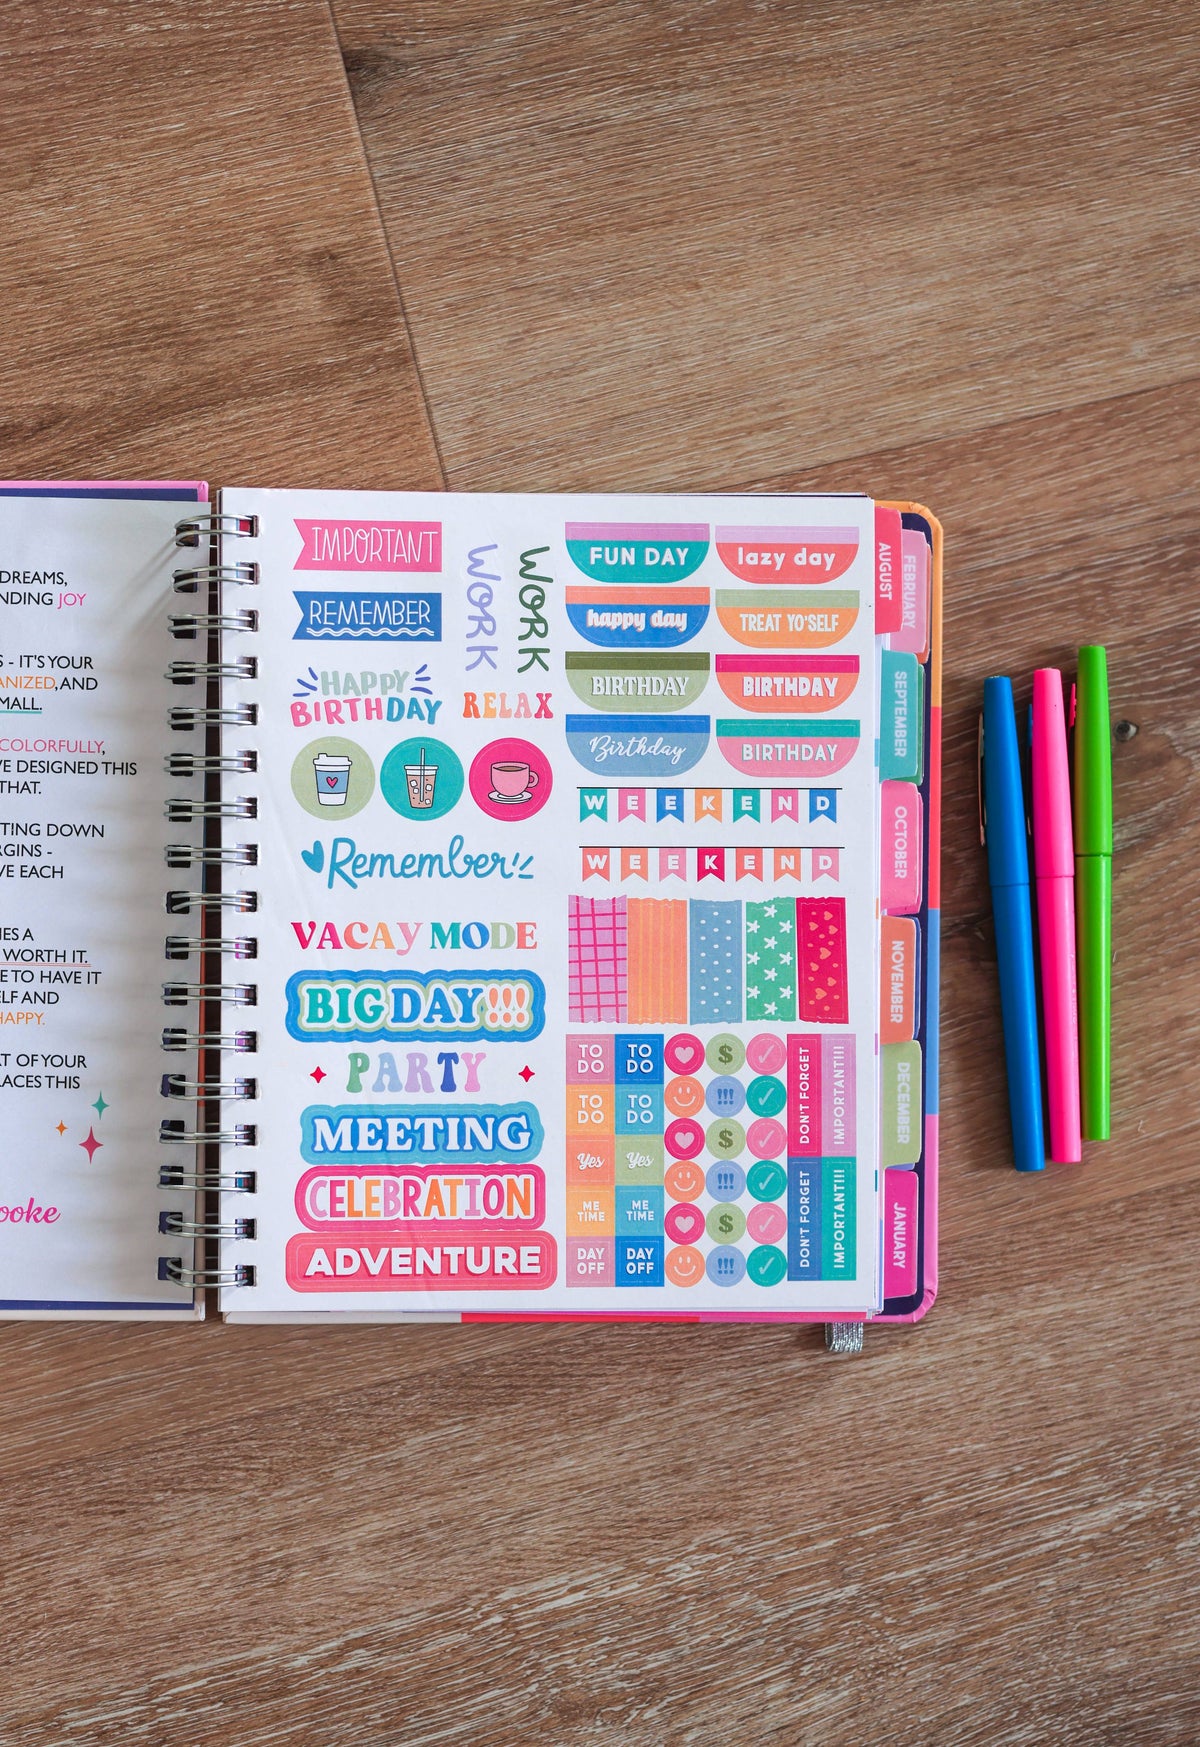 DREAMS,
NDING JOY
S - IT'S YOUR
ANIZED, AND
MALL.
COLORFULLY,
VE DESIGNED THIS
THAT.
TING DOWN
RGINS -
VE EACH
IES A
WORTH IT.
E TO HAVE IT
ELF AND
HAPPY.
AT OF YOUR
LACES THIS
ooke
IMPORTANT
REMEMBER
WORK
WORK
HAPPY
BIRTHDAY
RELAX
Remember
VACAY MODE
BIG DAY!!!
PARTY
MEETING
CELEBRATION
ADVENTURE
FUN DAY
lazy day
happy day
TREAT YO'SELF
BIRTHDAY
BIRTHDAY
Birthday
BIRTHDAY
WEEKEND
WEEKEND
TO
DO
TO
DO
$
TO
DO
TO
DO
!!!
Yes
Yes
$
!!!
ME
TIME
ME
TIME
$
DAY
OFF
DAY
OFF
!!!
DON'T FORGET
IMPORTANT!!!
DON'T FORGET
IMPORTANT!!!
AUGUST
FEBRUARY
SEPTEMBER
OCTOBER
NOVEMBER
DECEMBER
JANUARY